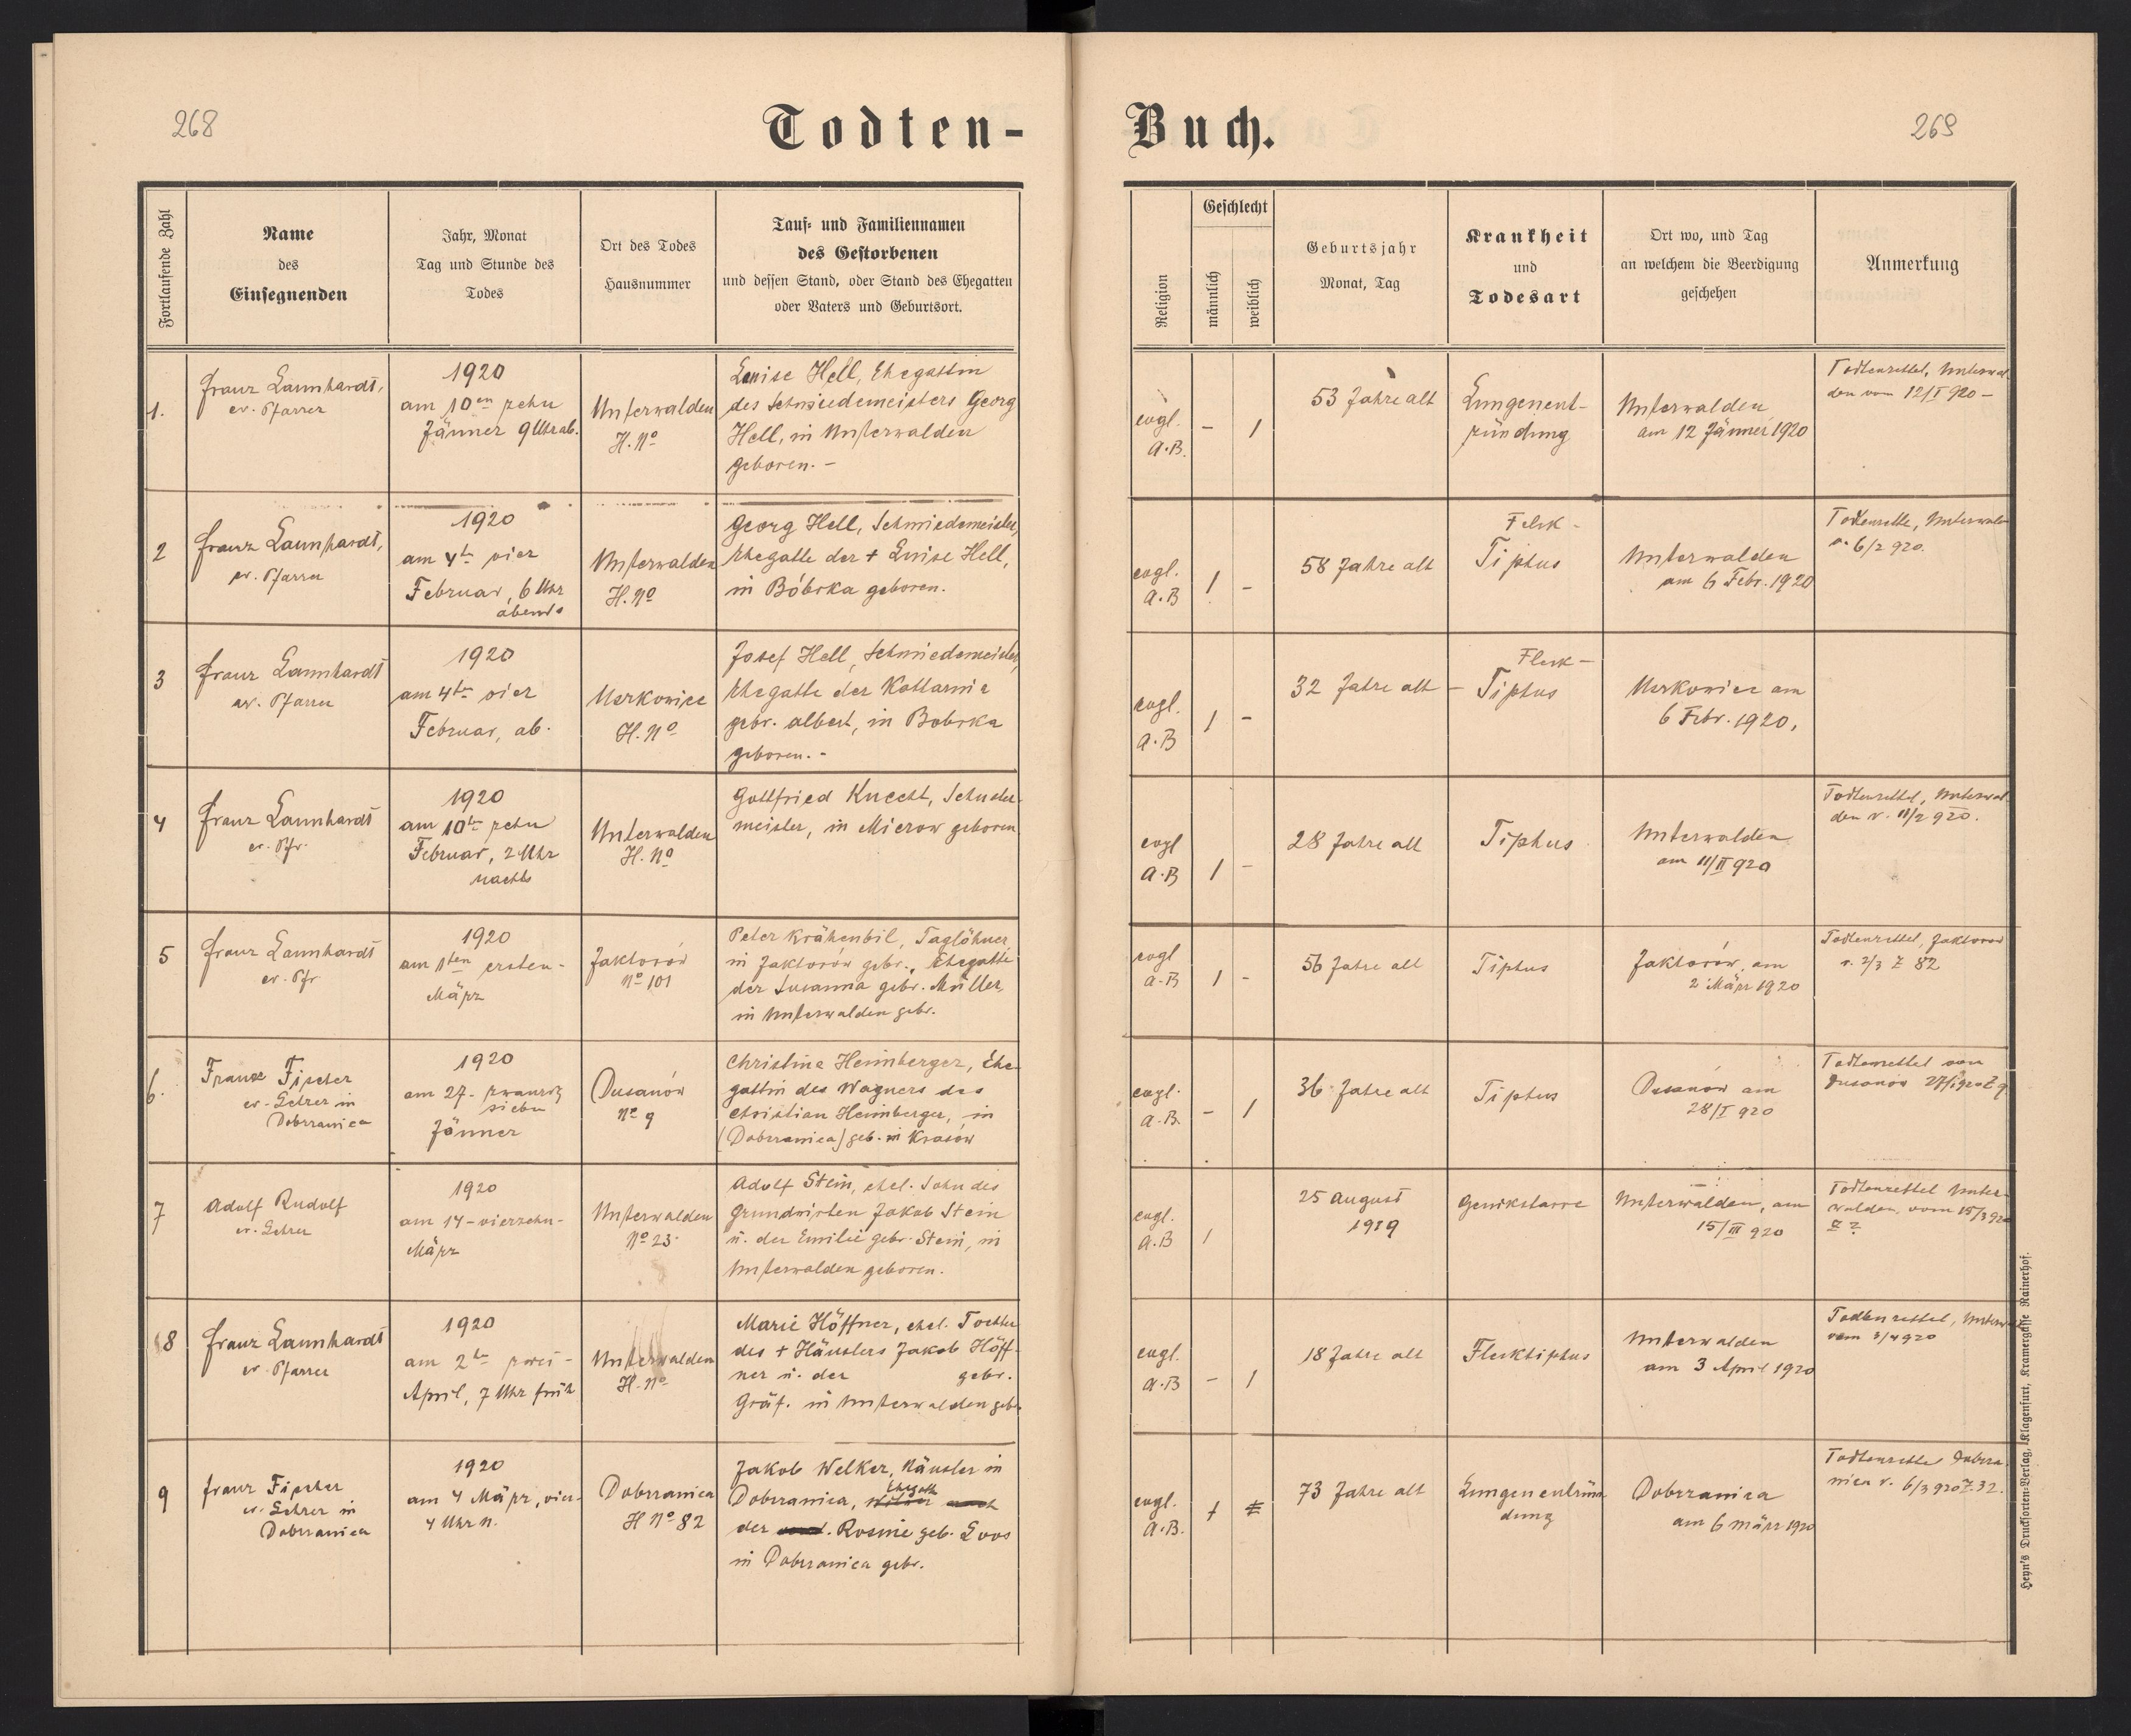 268
Todten-
Buch.
269
Fortlaufende Zahl
Name
des
Einsegnenden
Jahr, Monat
Tag und Stunde des
Todes
Ort des Todes
Hausnummer
Tauf- und Familiennamen
des Gestorbenen
und dessen Stand, oder Stand des Ehegatten
oder Vaters und Geburtsort.
Religion
Geschlecht
männlich
weiblich
Geburtsjahr
Monat, Tag
Krankheit
und
Todesart
Ort wo, und Tag
an welchem die Beerdigung
geschehen
Anmerkung
1.
Franz Lannhardt,
ev. Pfarrer
1920
am 10en zehn
Jänner 9 Uhr ab.
Unterwalden
H. No
Luise Hell, Ehegattin
des Schmiedemeisters Georg
Hell, in Unterwalden
geboren. -
evgl.
A.B.
- 1
53 Jahre alt
Lungenent-
zündung
Unterwalden
am 12 Jänner 1920
Todtenzettel, Unterwal-
den vom 12/I 920 -
2
Franz Lannhardt,
ev. Pfarrer
1920
am 4te vier
Februar, 6 Uhr
abends
Unterwalden
H. No
Georg Hell, Schmiedemeister,
Ehegatte der + Luise Hell,
in Bóbrka geboren.
evgl.
A.B
1 -
58 Jahre alt
Fleck-
Tiphus
Unterwalden
am 6 Febr. 1920
Todtenzettel, Unterwalden
v. 6/2 920.
3
Franz Lannhardt
ev. Pfarrer
1920
am 4ten vier
Februar, ab.
Merkowice
H. No
Josef Hell, Schmiedemeister,
Ehegatte der Katharnie
gebr. Albert, in Bobrka
geboren. -
evgl.
A.B
1 -
32 Jahre alt -
Fleck-
Tiphus
Merkowice am
6 Febr. 1920,
4
Franz Lannhardt
ev. Pfr.
1920
am 10te zehn
Februar, 2 Uhr
nachts
Unterwalden
H. No
Gottfried Knecht, Schuster-
meister, in Mierow geboren
evgl
A.B
1 -
28 Jahre alt
Tiphus
Unterwalden
am 11/II 920
Todtenzettel, Unterwal-
den v. 11/2 920.
5
Franz Lannhardt
ev. Pfr
1920
am 1ten ersten-
März
Jaktorów
No 101
Peter Krähenbil, Taglöhner,
in Jaktorów gebr., Ehegatte
der Susanna gebr. Müller,
in Unterwalden gebr.
evgl
A.B
1 -
56 Jahre alt
Tiphus
Jaktorów, am
2 März 1920
Todtenzettel, Jaktorow
v. 2/3 Z 82
6.
Franz Fischer
ev. Lehrer in
Dobrzanica
1920
am 27. zwanzig
sieben
Jänner
Dusanów
No 9
Christina Heimberger, Ehe-
gattin des Wagners des
Christian Heimberger, in
(Dobrzanica) geb. in Krasów
evgl.
A.B.
- 1
36 Jahre alt
Tiphus
Dusanów am
28/I 920
Todtenzettel von
Dusanow 27/I 920 Z 9
7
Adolf Rudolf
ev. Lehrer
1920
am 14-vierzehn-
März
Unterwalden
No 23.
Adolf Stein, ehel. Sohn des
Grundwirten Jakob Stein
u. der Emilie gebr. Stein, in
Unterwalden geboren.
evgl.
A.B
1
25 August
1919
Genickstarre
Unterwalden, am
15/III 920
Todtenzettel Unter-
walden, vom 15/3 920
Z ?
8
Franz Lannhardt
ev. Pfarrer
1920
am 2te zwei-
April, 7 Uhr früh
Unterwalden
H. No
Marie Höffner, ehel. Tochter
des + Häuslers Jakob Höff-
ner u. der gebr.
Gräf. in Unterwalden gebr.
evgl.
A.B
- 1
18 Jahre alt
Flecktiphus
Unterwalden
am 3 April 1920
Todtenzettel, Unterw
vom 3/4 920
9
Franz Fischer
ev. Lehrer in
Dobrzanica
1920
am 4 März, vier-
4 Uhr n.
Dobrzanica
H No 82
Jakob Welker, Häusler in
Dobrzanica, Ehegatte
der Rosine geb. Loos
in Dobrzanica gebr.
evgl.
A.B.
73 Jahre alt
Lungenentzün-
dung
Dobrzanica
am 6 März 1920
Todtenzettel Dobrza-
nica v. 6/3 920 Z. 32.
Heyn's Drucksorten-Verlag, Klagenfurt, Kramergasse Rainerhof.